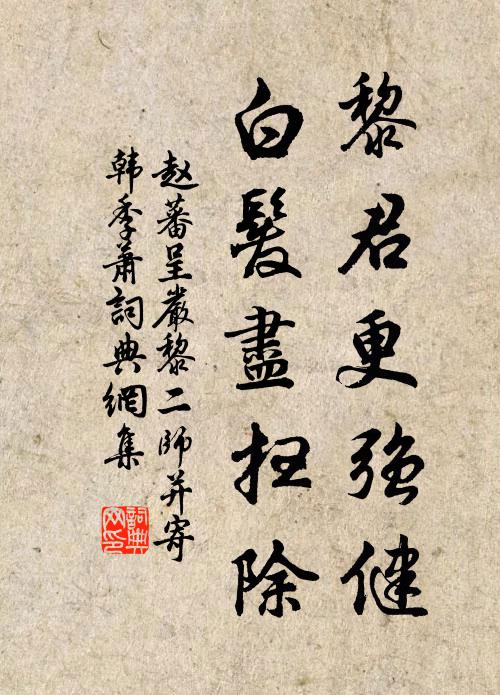 黎君更強健
白髮盡扫除
赵蕃呈嚴黎二師并寄
韩季蕭詞典網集
詞典网印